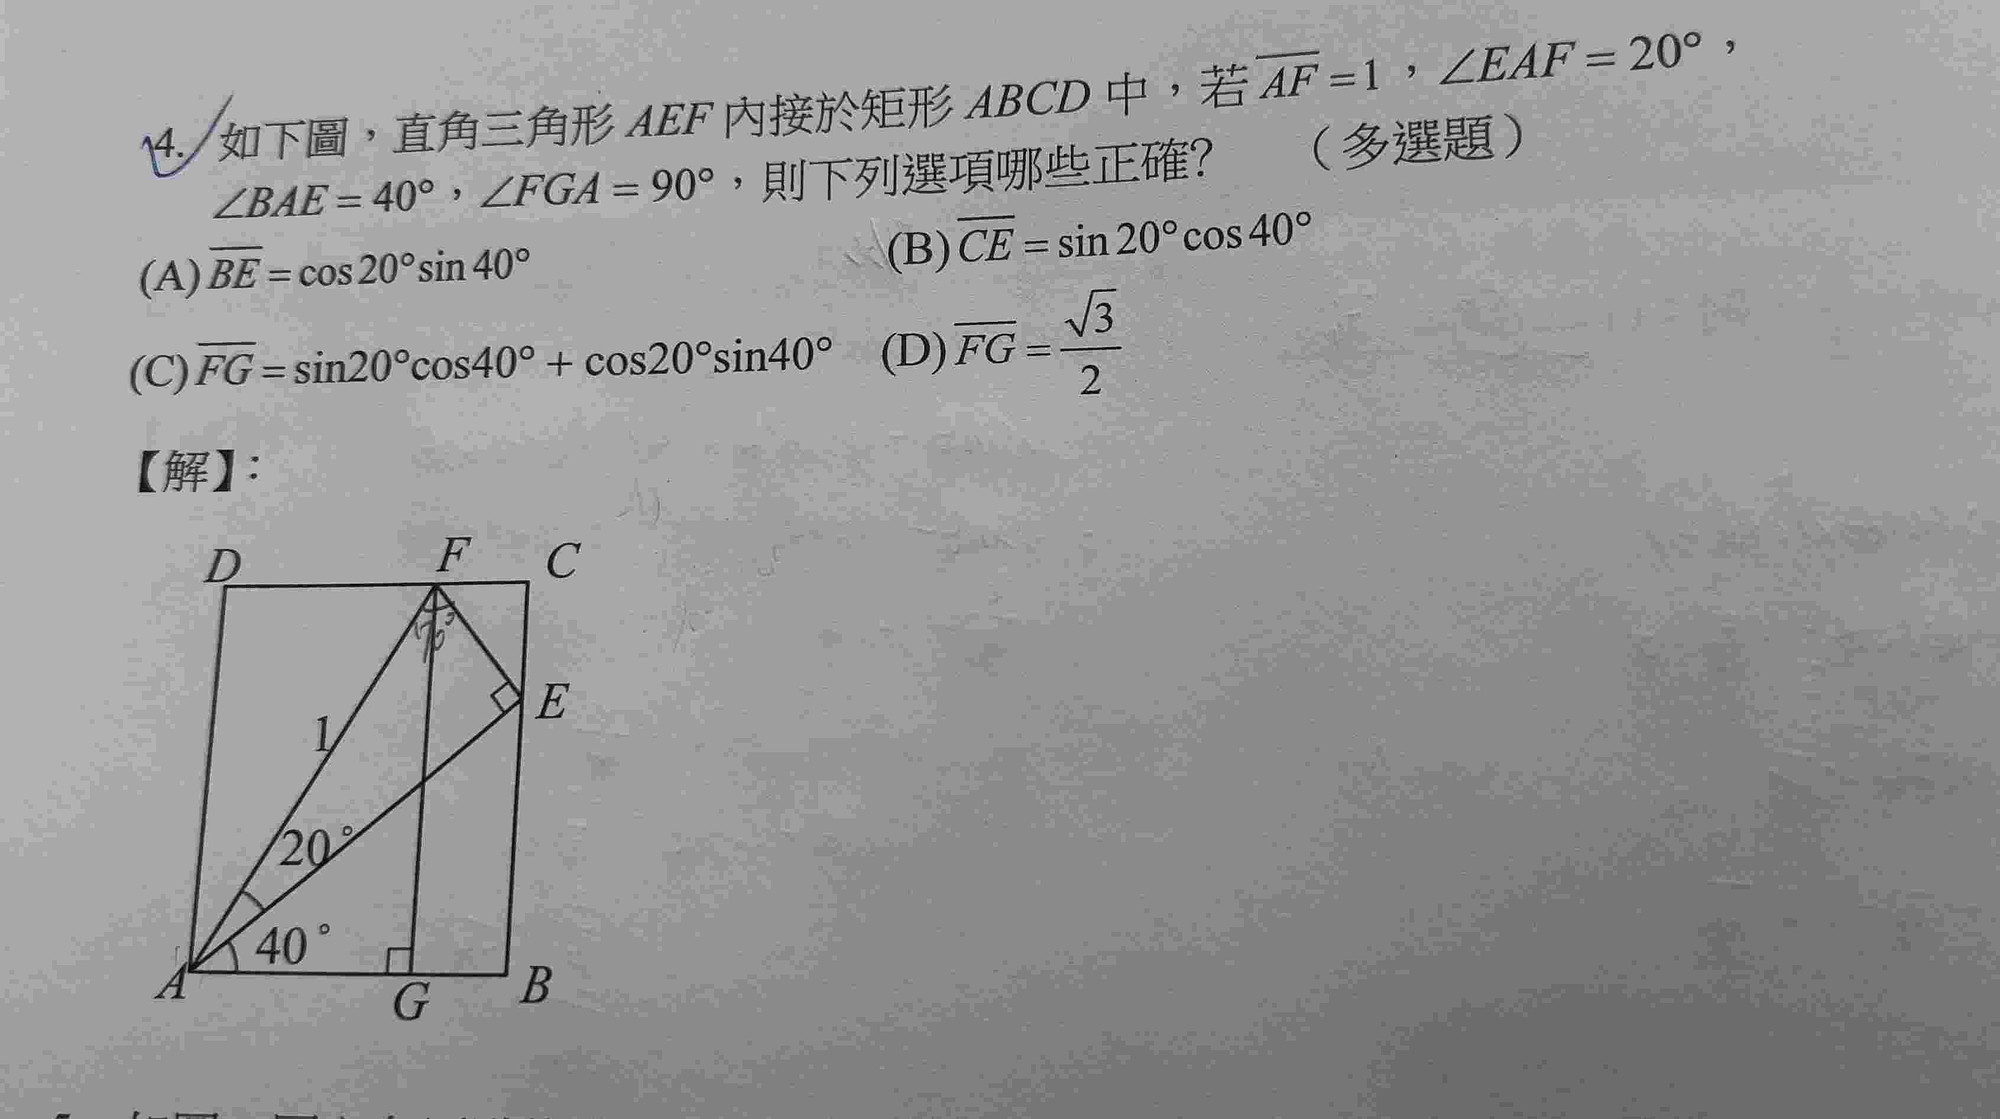 14. 如下圖，直角三角形 AEF 內接於矩形 ABCD 中，若 \overline{AF} =1，∠EAF = 20°，
∠BAE = 40°，∠FGA = 90°，則下列選項哪些正確? （多選題）
(A) \overline{BE} = cos20°sin40° (B) \overline{CE} = sin20°cos40°
(C) \overline{FG} = sin20°cos40° + cos20°sin40° (D) \overline{FG} = \frac{\sqrt{3}}{2}
【解】:
D F C
70°
E
1
20°
40°
A G B